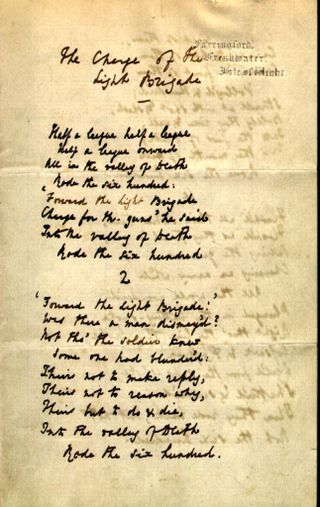 The Charge of the
Farringford,
Freshwater,
Isle of Wight.
Light Brigade
Half a league half a league
Half a league onward
All in the valley of Death
Rode the six hundred:
'Forward the Light Brigade
Charge for the guns' he said
Into the valley of Death
Rode the six hundred
2
'Forward the Light Brigade!'
Was there a man dismay'd?
Not tho' the soldier knew
Some one had blunder'd:
Theirs not to make reply,
Theirs not to reason why,
Theirs but to do & die,
Into the valley of Death
Rode the six hundred.